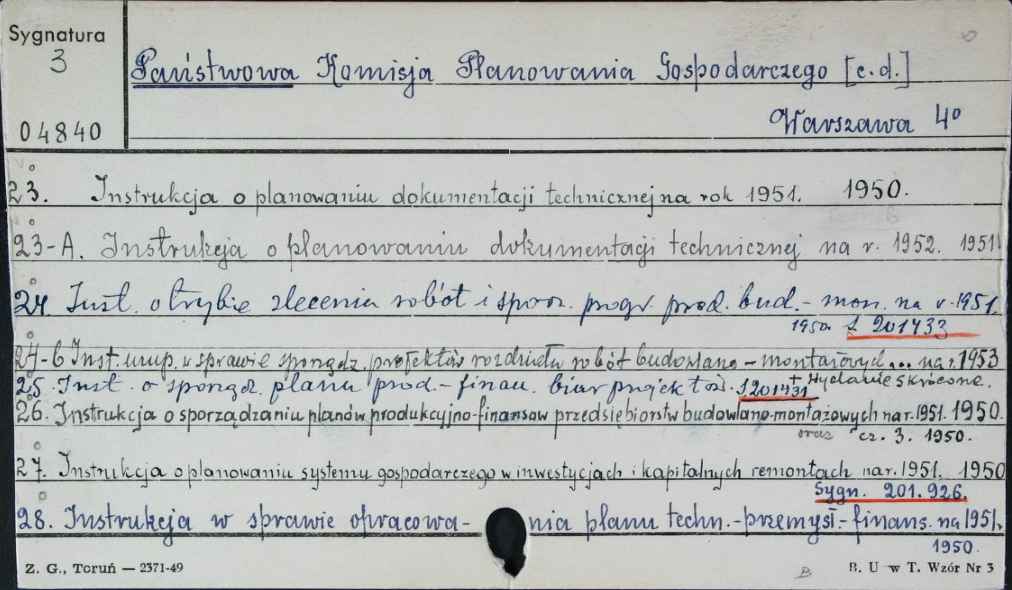 Sygnatura
3
04840
Państwowa Komisja Planowania Gospodarczego [c.d.]
Warszawa 4°
23. Instrukcja o planowaniu dokumentacji technicznej na rok 1951. 1950.
23-A. Instrukcja o planowaniu dokumentacji technicznej na r. 1952. 1951
24. Inst. o trybie zlecenia robót i sporz. progr. prod. bud.- mon. na r. 1951.
1950. S. 201433
24-b Inst. uzup. w sprawie sporządz. projektów rozdziału robót budowlano - montażowych... na r. 1953
25. Inst. o sporządz. planu prod.- finan. biur projektow. S. 201431 + Wydanie skrócone.
26. Instrukcja o sporządzaniu planów produkcyjno-finansow przedsiębiorstw budowlano-montażowych na r. 1951. 1950.
oraz cz. 3. 1950.
27. Instrukcja o planowaniu systemu gospodarczego w inwestycjach i kapitalnych remontach na r. 1951. 1950
Sygn. 201.926.
28. Instrukcja w sprawie opracowa- nia planu techn.-przemysł.- finans. na 1951.
1950.
Z. G., Toruń — 2371-49
B. U w T. Wzór Nr 3